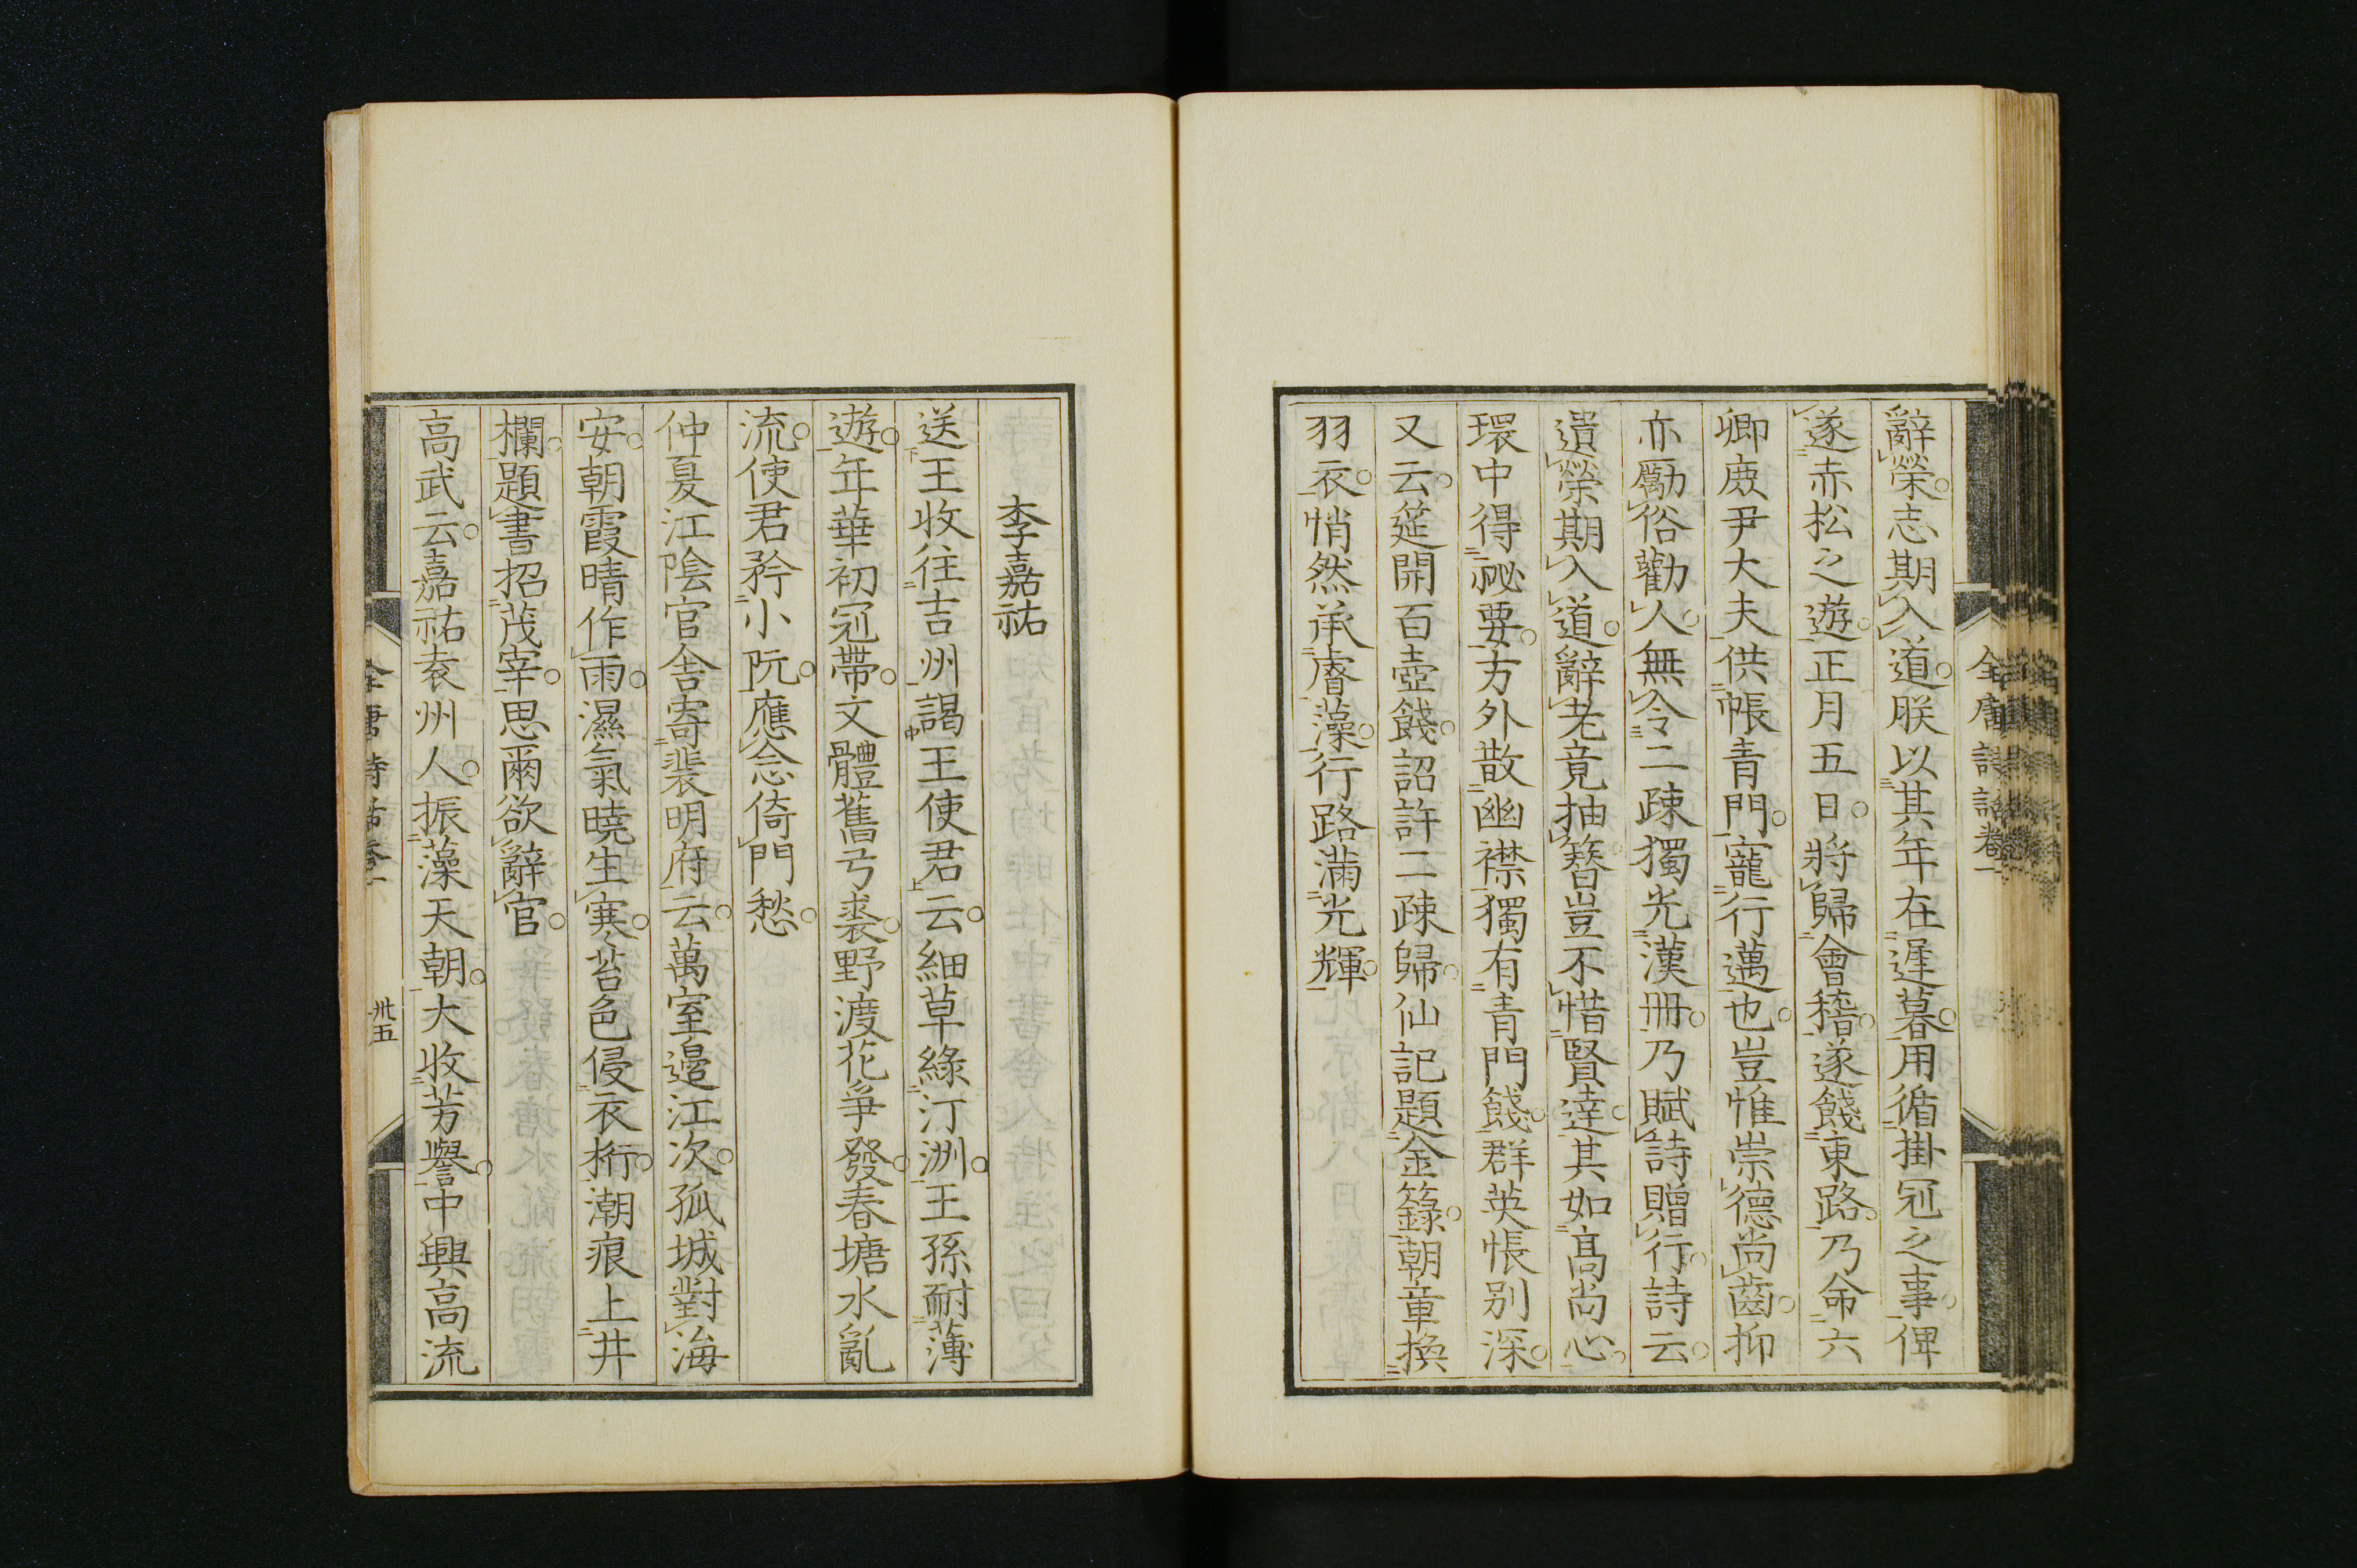 辭榮志期入道朕以其年在遲暮用循掛冠之事俾
遂赤松之遊正月五日將歸會稽遂餞東路乃命六
卿庶尹大夫供帳青門寵行邁也豈惟崇德尚齒抑
亦勵俗勸人無令二疎獨光漢冊乃賦詩贈行詩云
遺榮期入道辭老竟抽簪豈不惜賢達其如高尚心
環中得祕要方外散幽襟獨有青門餞群英悵別深
又云筵開百壺餞詔許二疎歸仙記題金籙朝章換
羽衣悄然承睿藻行路滿光輝
全唐詩話卷一
李嘉祐
送王收往吉州謁王使君云細草綠汀洲王孫耐薄
遊年華初冠帶文體舊弓裘野渡花爭發春塘水亂
流使君矜小阮應念倚門愁
仲夏江陰官舍寄裴明府云萬室邊江次孤城對海
安朝霞晴作雨濕氣曉生寒苔色侵衣桁潮痕上井
欄題書招茂宰思爾欲辭官
高武云嘉祐袁州人振藻天朝大收芳譽中興高流
全唐詩話卷一
卅五